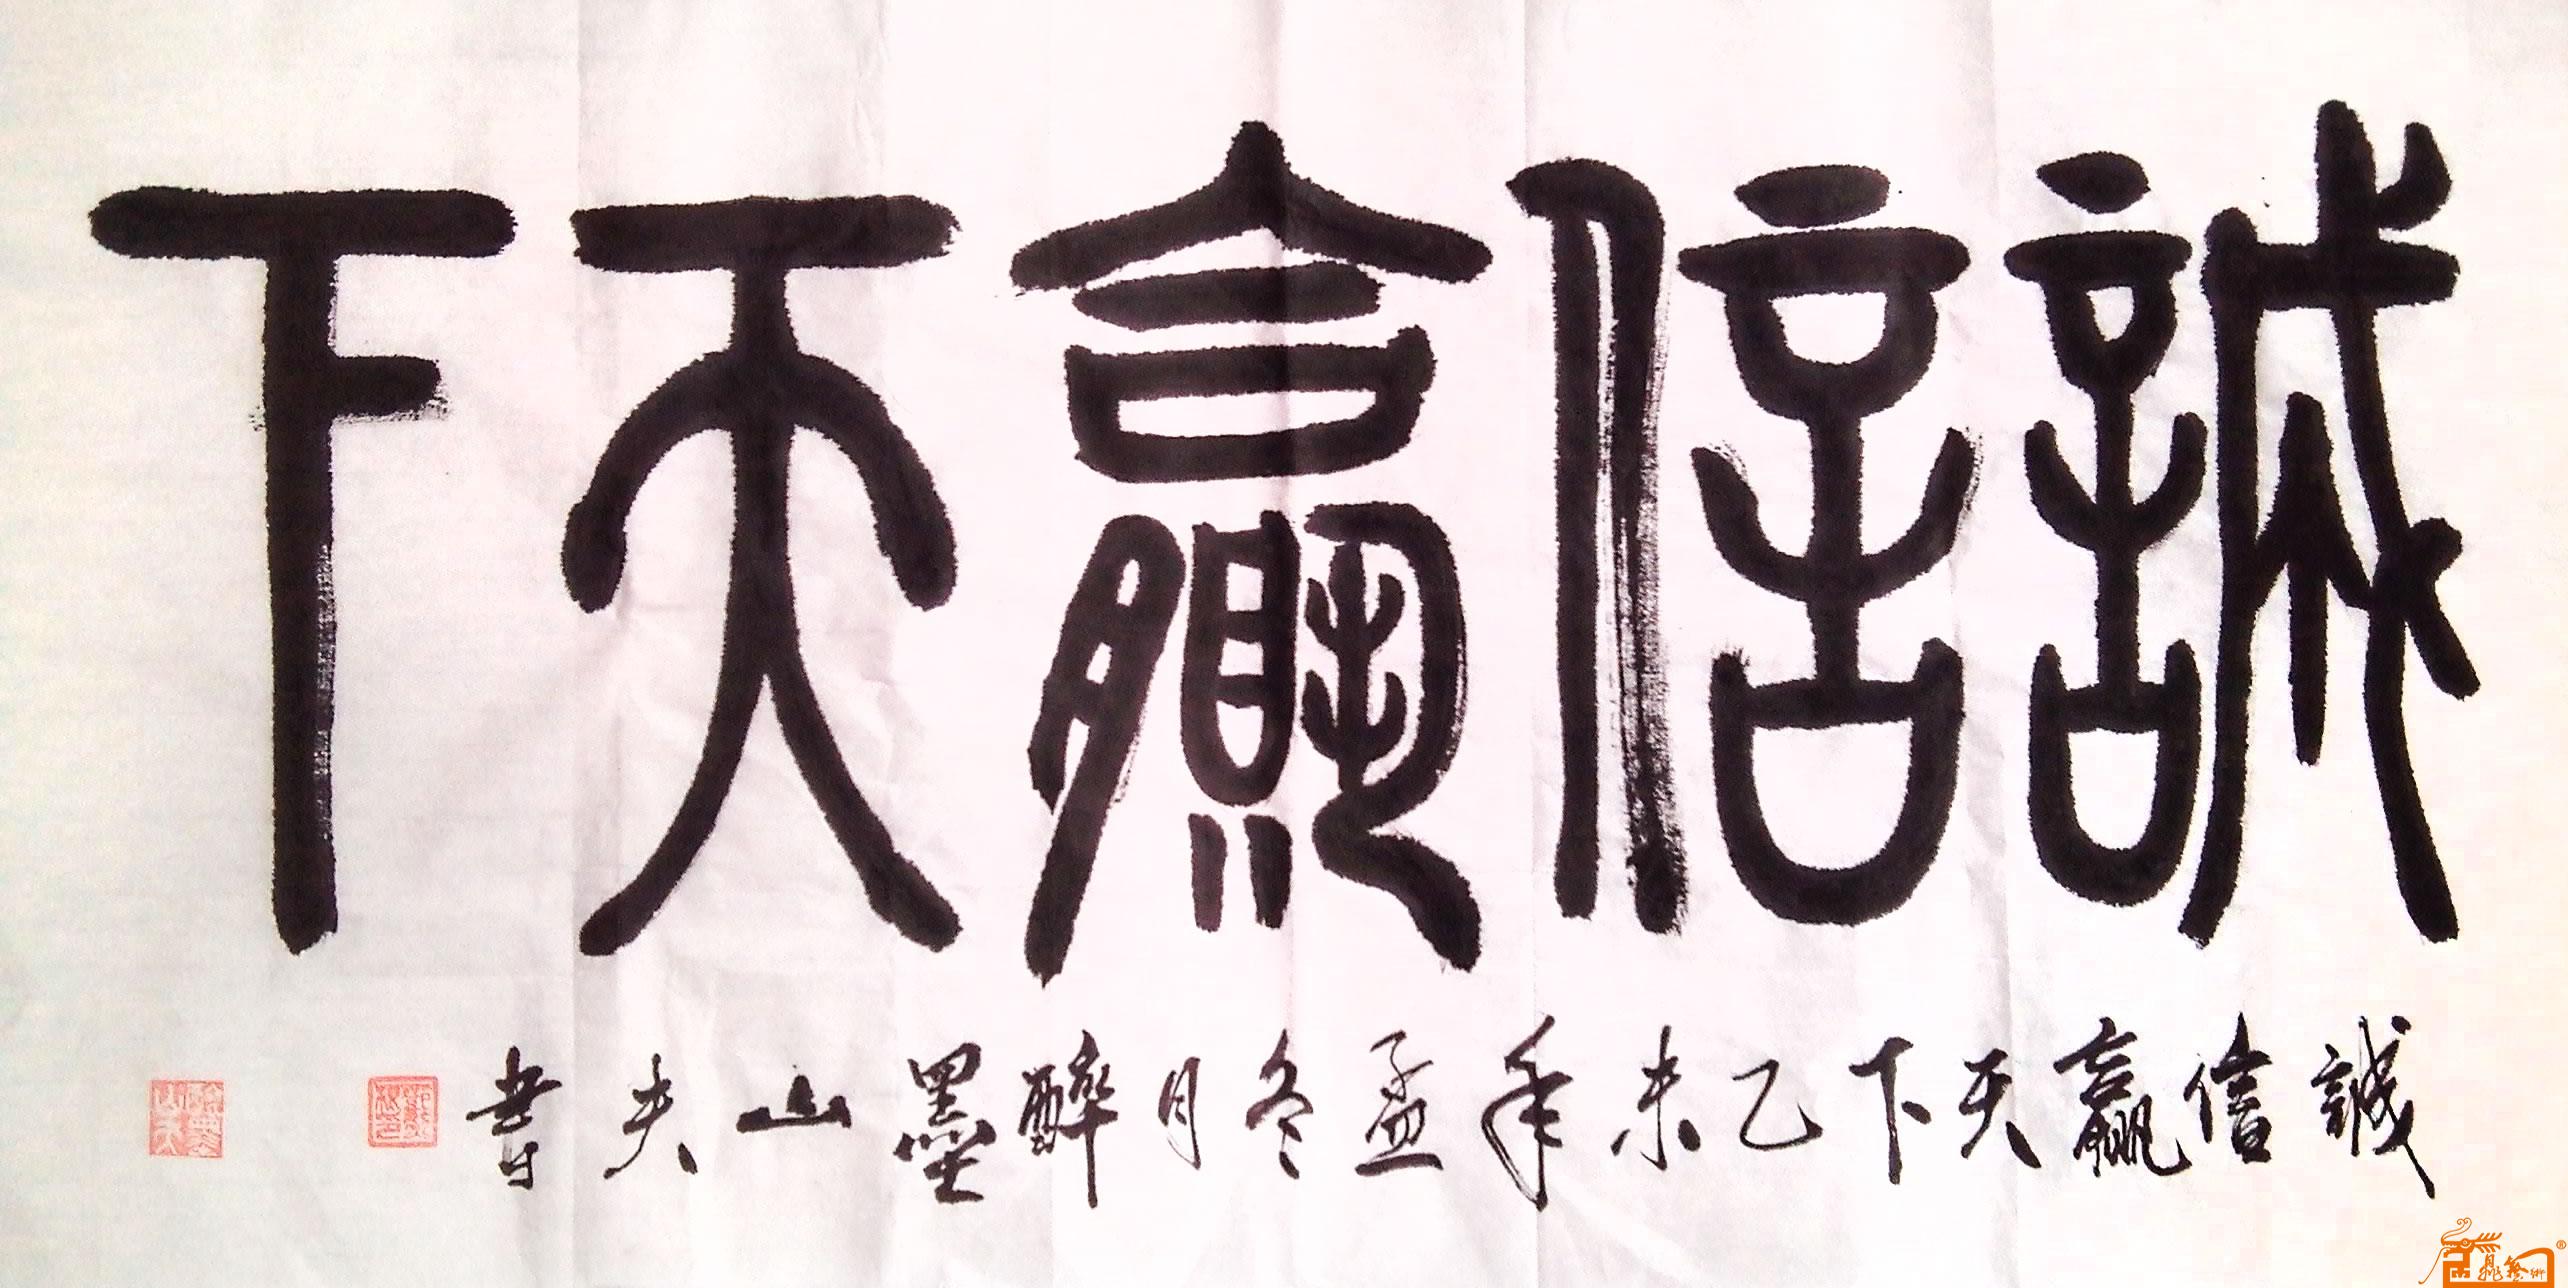 誠信贏天下
誠信贏天下乙未年孟冬月醉墨山夫書